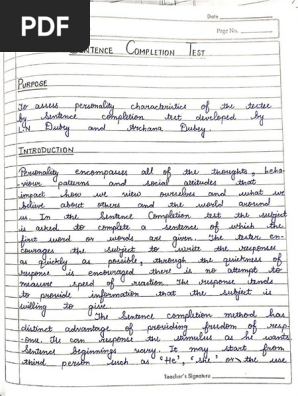 PDF
Date
Page No.
SENTENCE COMPLETION TEST
PURPOSE
To assess personality characteristics of the testee
by Sentence completion test developed by
L.N Dubey and Archana Dubey.
INTRODUCTION
Personality encompasses all of the thoughts, beha-
viour patterns and social attitudes that
impact how we view ourselves and what we
believe about others and the world around
us. In the Sentence Completion test the subject
is asked to complete a sentence of which the
first word or words are given. The tester en-
courages the subject to write the responses
as quickly as possible, through the quickness of
response is encouraged there is no attempt to
measure speed of reaction. The response tends
to provide information that the subject is
willing to give.
The Sentence completion method has
distinct advantage of providing freedom of resp-
onse. He can respond the stimulus as he wants
Sentence beginnings vary. It may start from
third person such as 'He', 'She' or the use
Teacher's Signature